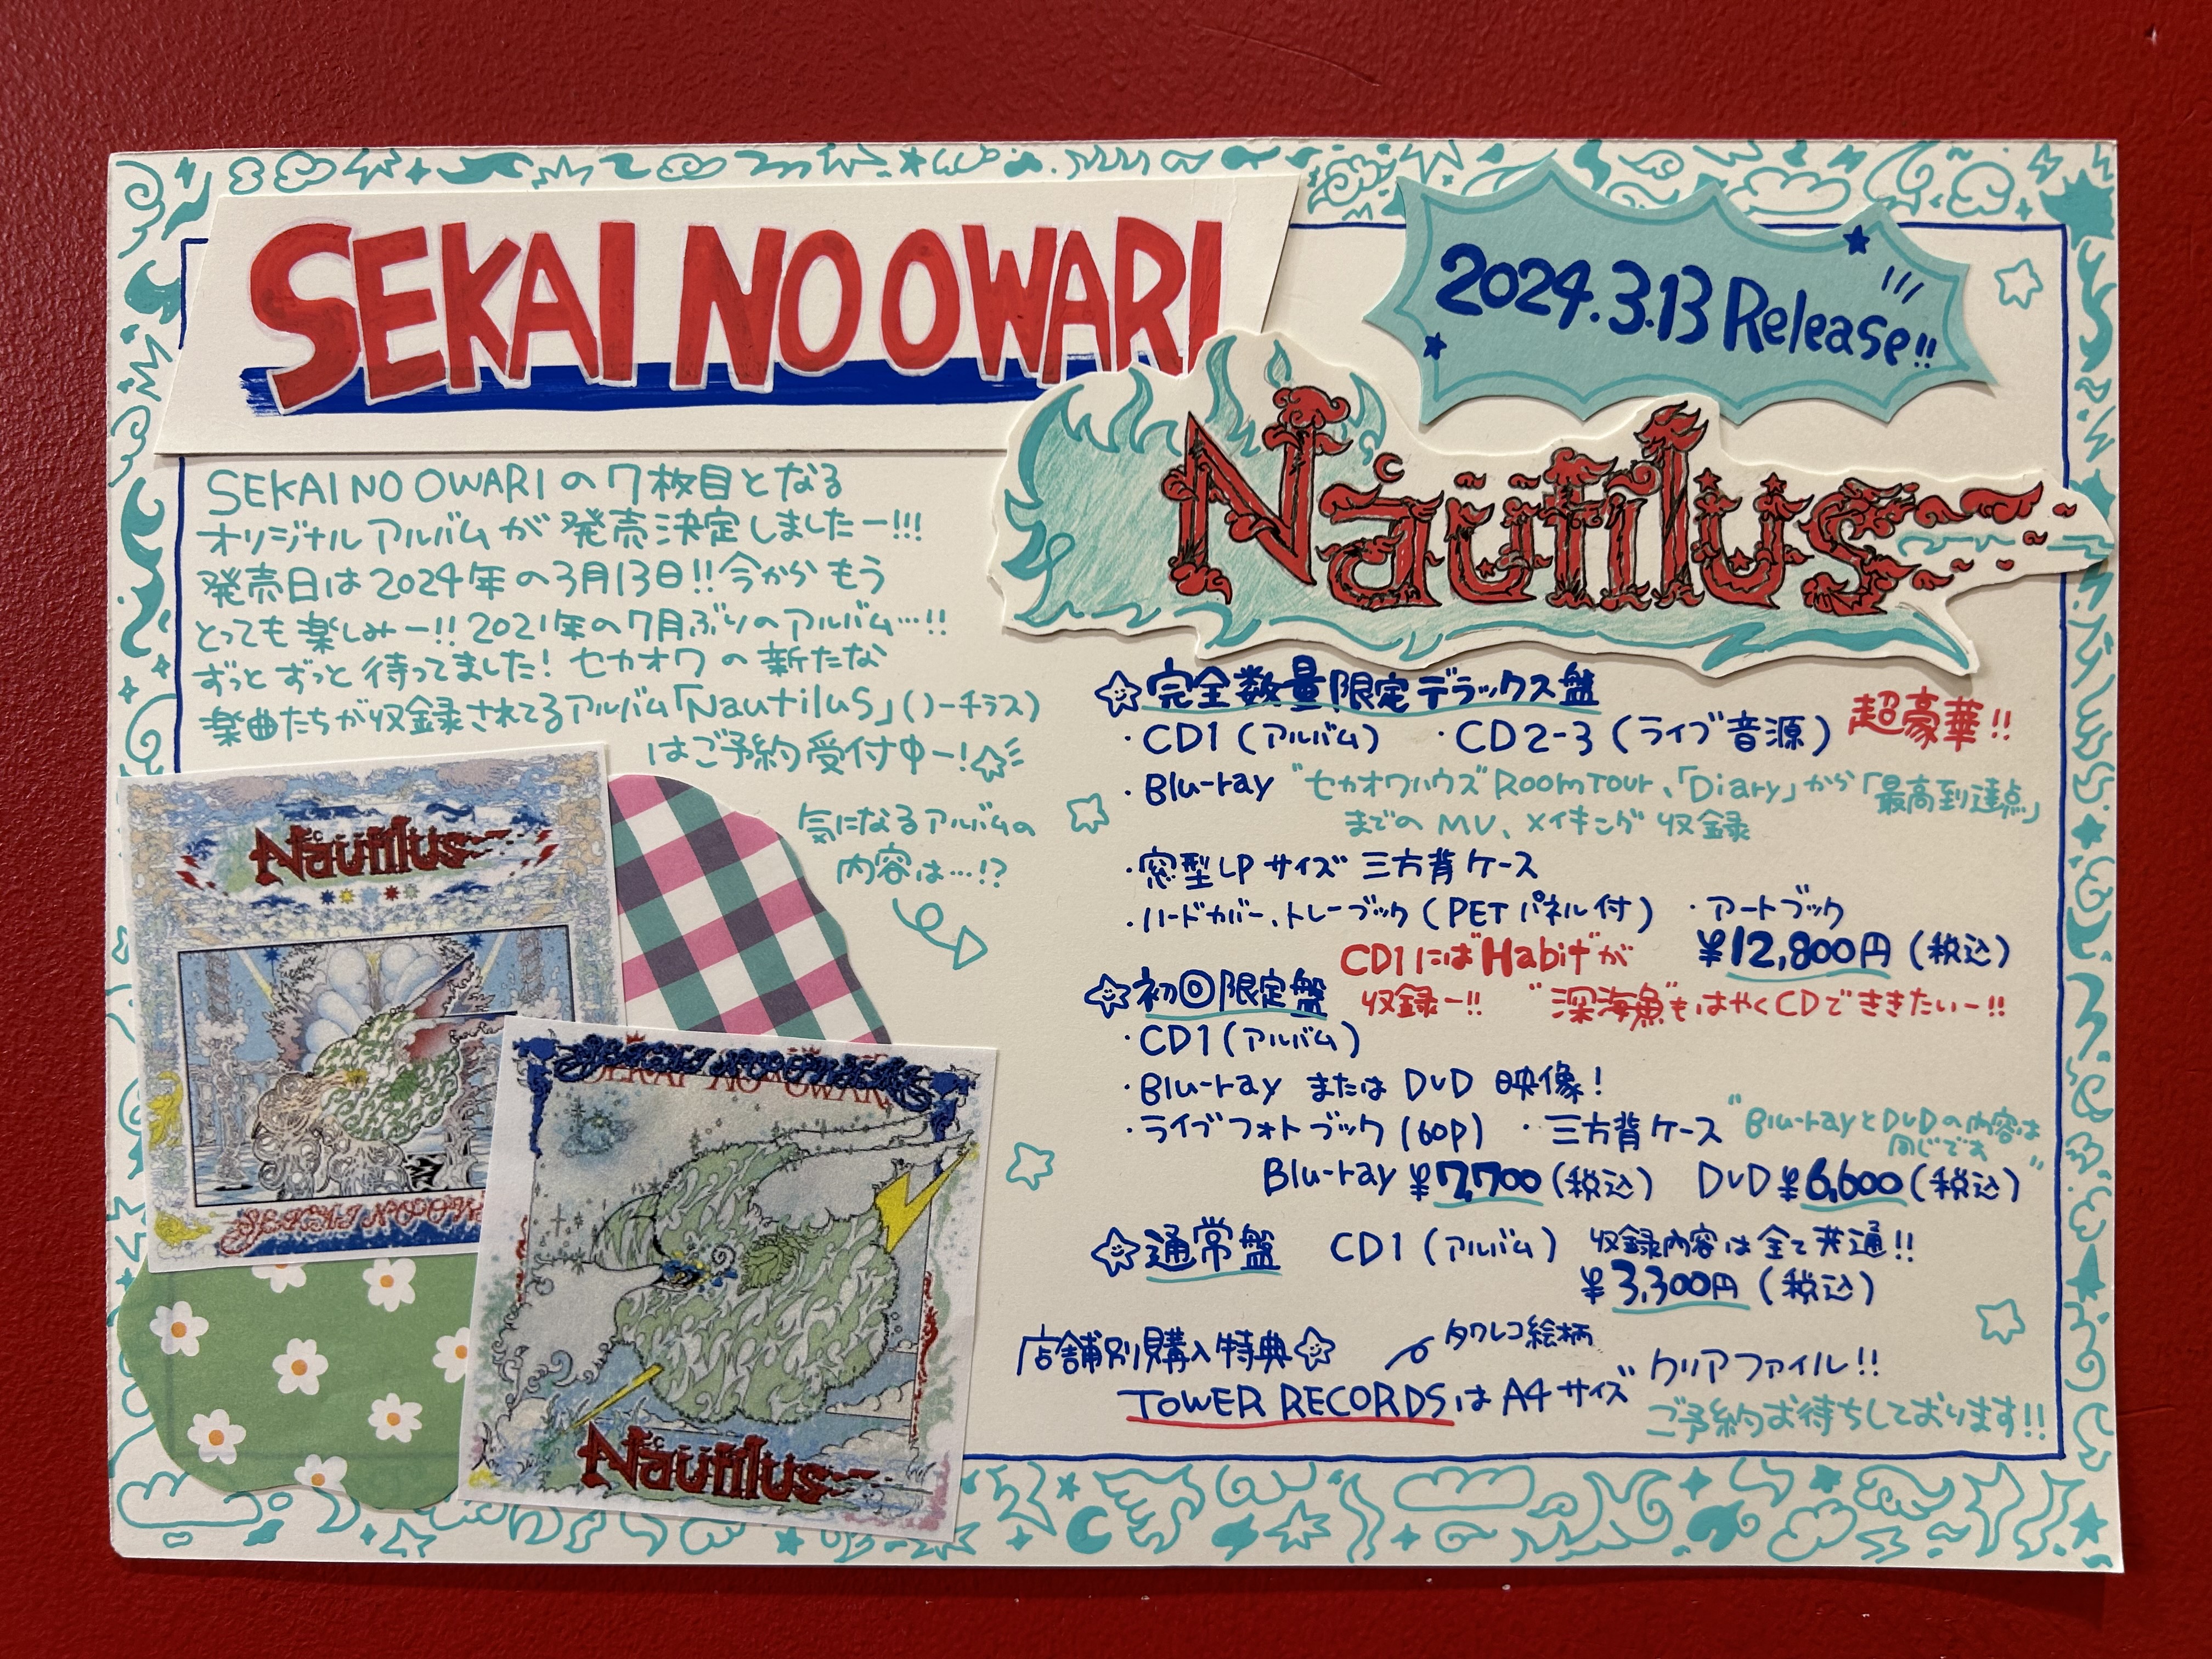 SEKAI NO OWARI
2024.3.13 Release!!
Nautilus
SEKAI NO OWARIの7枚目となる
オリジナルアルバムが発売決定しましたー!!!
発売日は2024年の3月13日!!今からもう
とっても楽しみー!!2021年の7月ぶりのアルバム…!!
ずっとずっと待ってました!セカオワの新たな
楽曲たちが収録されてるアルバム「Nautilus」(ノーチラス)
はご予約受付中ー!
気になるアルバムの
内容は…!?
Nautilus
SEKAI NO OWARI
SEKAI NO OWARI
Nautilus
完全数量限定デラックス盤
・CD1(アルバム) ・CD2-3(ライブ音源) 超豪華!!
・Blu-ray "セカオワハウス"RoomTour、「Diary」から「最高到達点」
までのMV、メイキング収録
・窓型LPサイズ三方背ケース
・ハードカバー、トレーブック(PETパネル付) ・アートブック
¥12,800円(税込)
CD1には"Habit"が
収録ー!! "深海魚"もはやくCDでききたいー!!
初回限定盤
・CD1(アルバム)
・Blu-ray または DVD 映像!
・ライブフォトブック(60P) ・三方背ケース
"Blu-rayとDVDの内容は
同じです"
Blu-ray ¥7,700(税込) DVD ¥6,600(税込)
通常盤 CD1(アルバム) 収録内容は全て共通!!
¥3,300円(税込)
店舗別購入特典 タワレコ絵柄
TOWER RECORDSはA4サイズ クリアファイル!!
ご予約お待ちしております!!